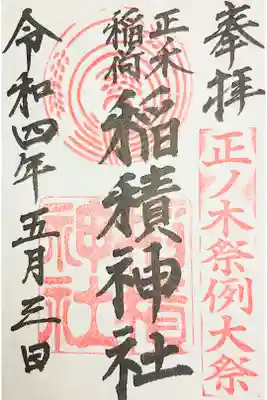 奉拝
正ノ木祭例大祭
正木
稲荷
稲積神社
令和四年五月三日